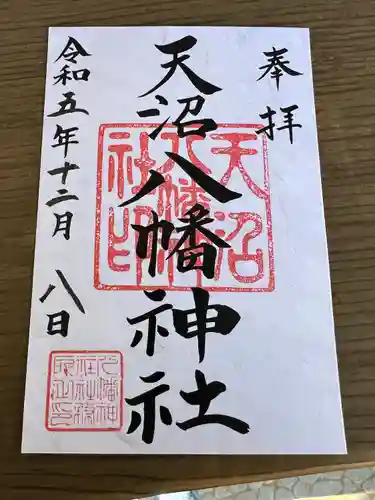 奉拝
天沼八幡神社
令和五年十二月八日
天沼
八幡
社印